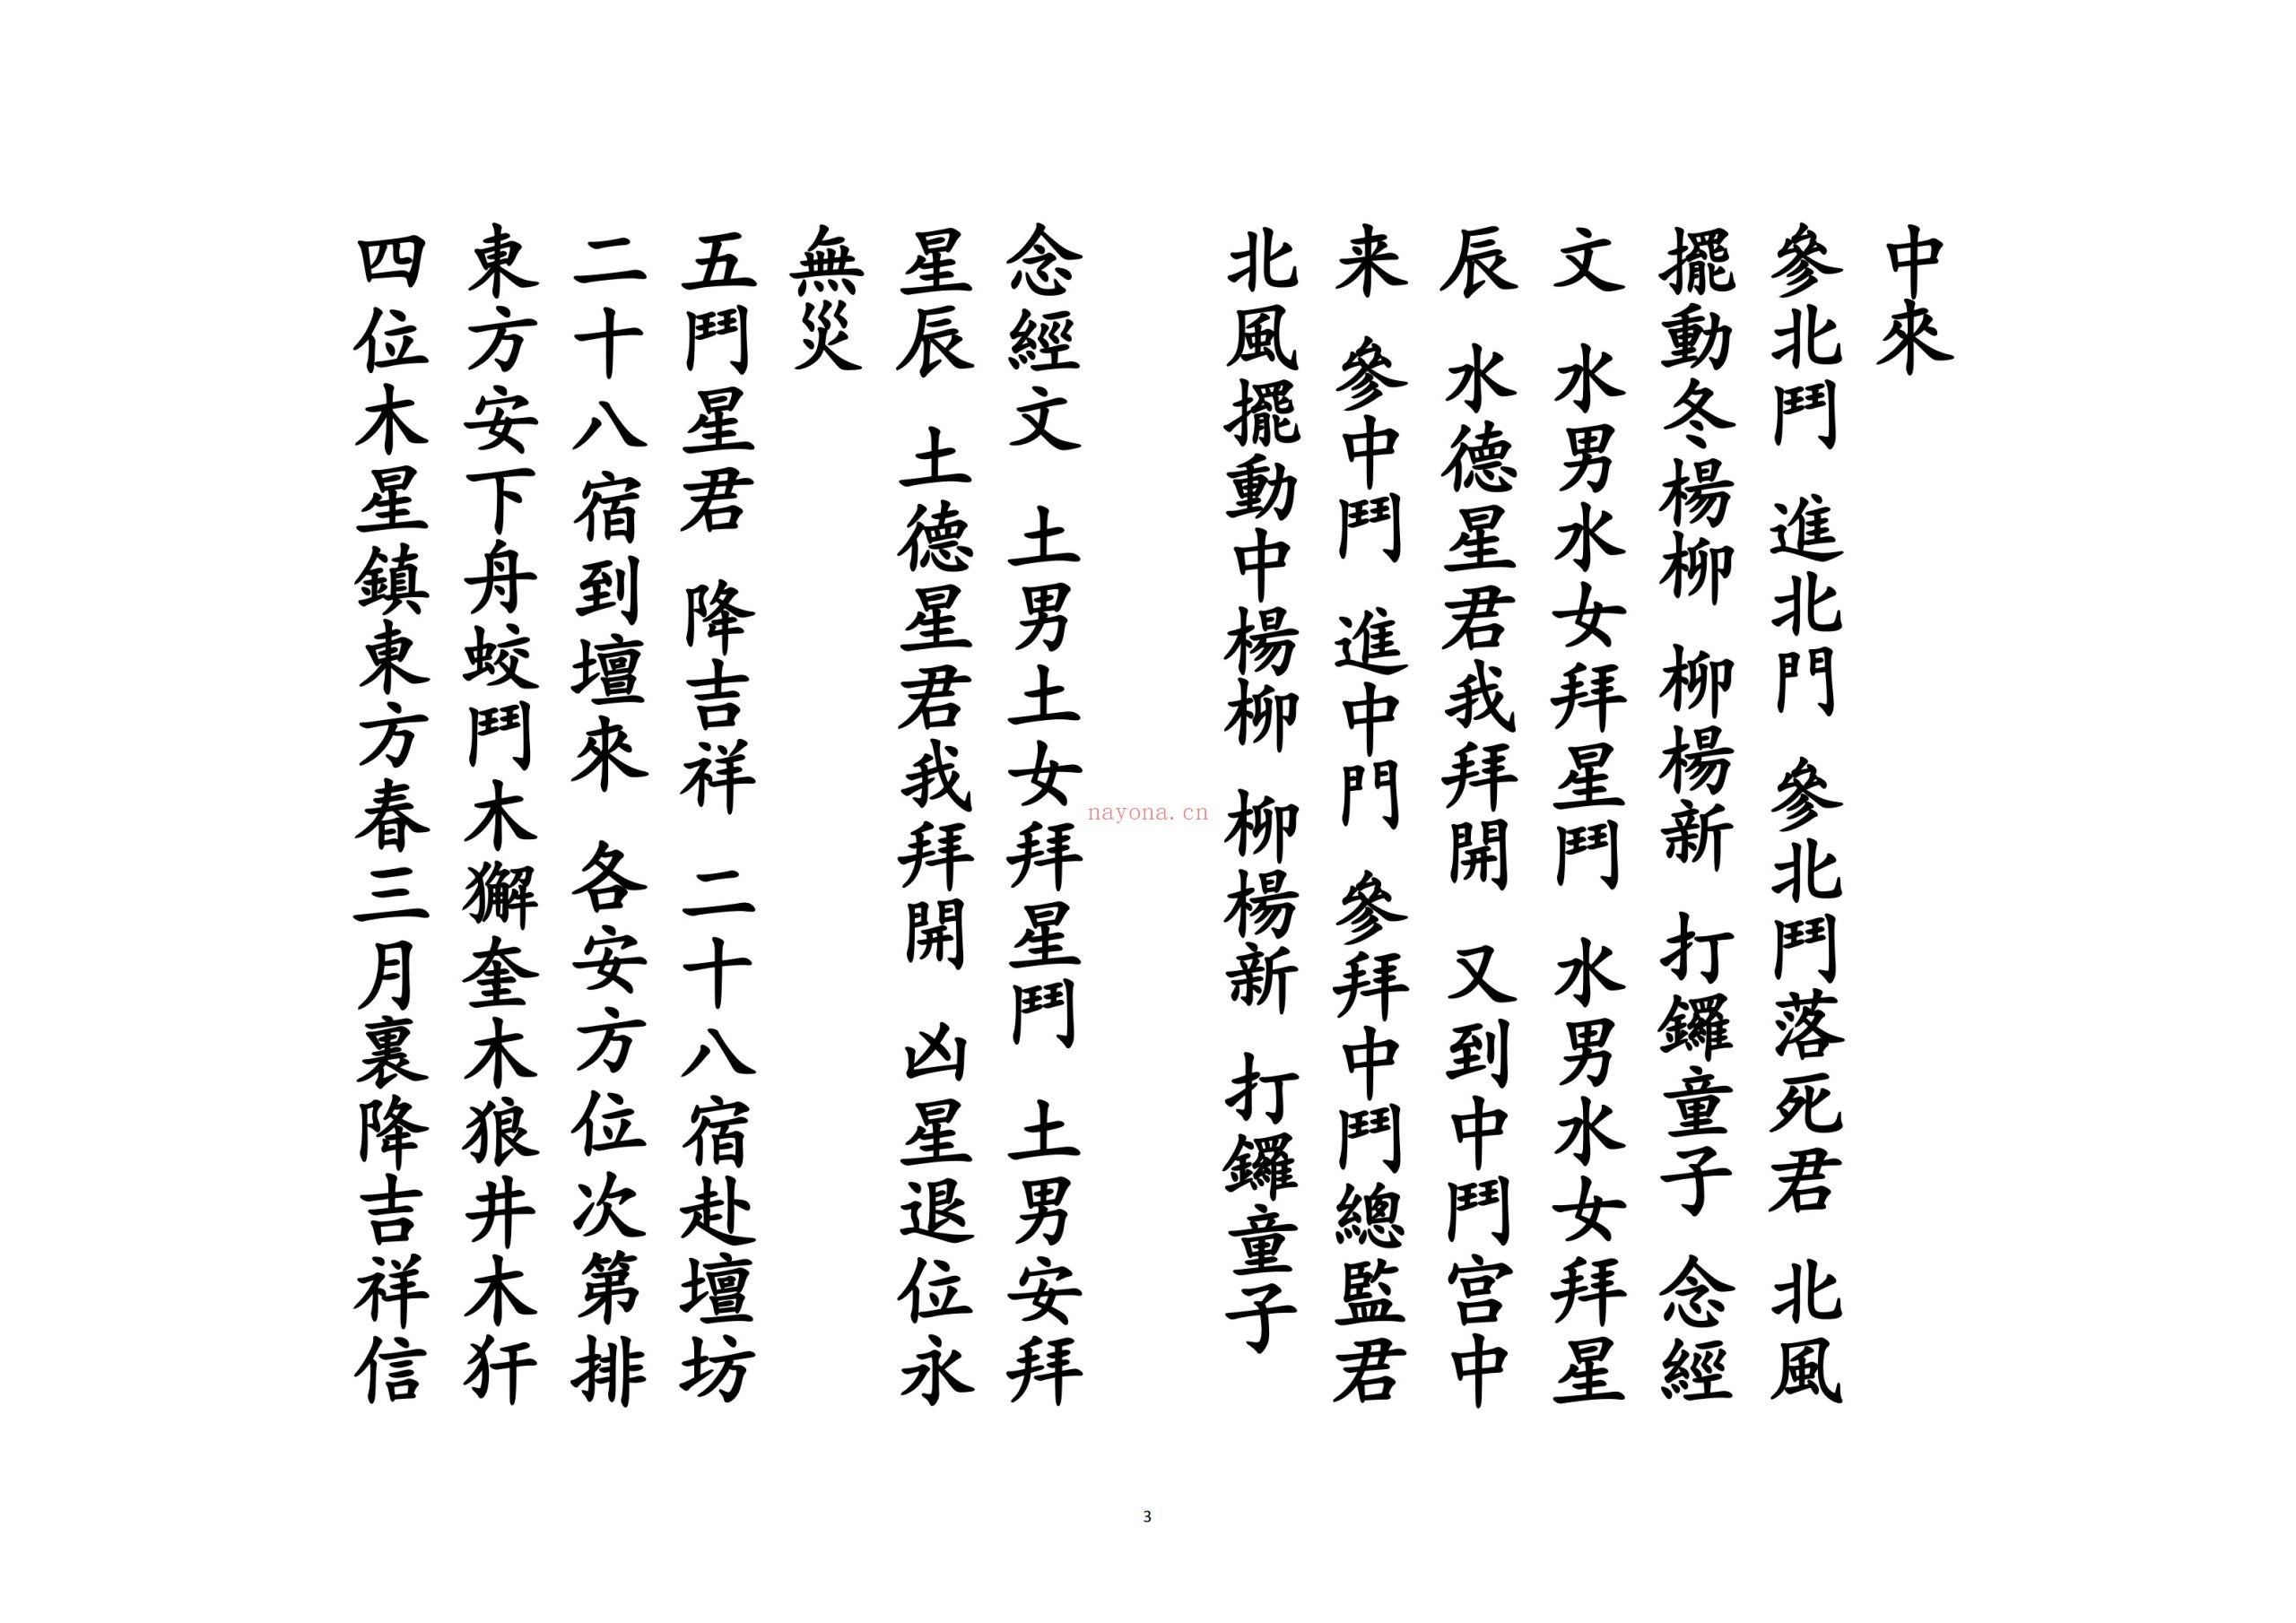 中來
參北鬥 進北門 參北鬥落死君 北風
擺動冬楊柳 柳楊新 打鑼童子 念經
文 水男水女拜星鬥 水男水女拜星
辰 水德星君我拜開 又到中鬥宫中
来 參中鬥 進中門 參拜中鬥總監君
北風擺動中楊柳 柳楊新 打鑼童子
念經文 土男土女拜星鬥 土男安拜
星辰 土德星君我拜開 凶星退位永
無災
五鬥星君 降吉祥 二十八宿赴壇坊
二十八宿到壇來 各安方位次第排
東方安下舟蛟鬥木獬奎木狼井木犴
四位木星鎮東方春三月裏降吉祥信
nayona.cn
3